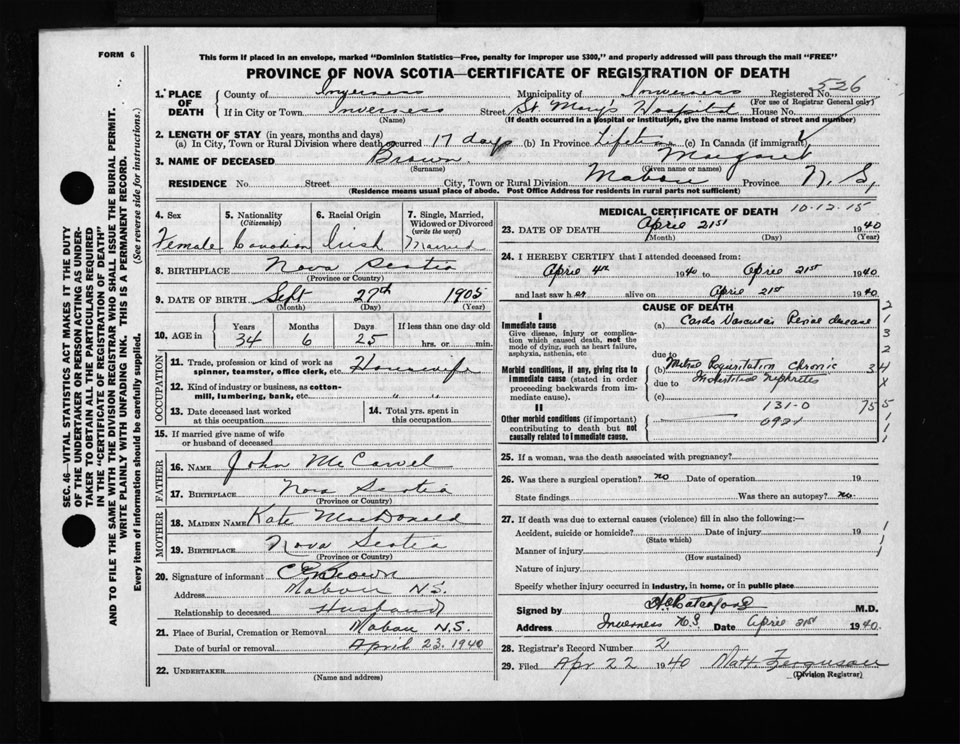 FORM 6
This form if placed in an envelope, marked "Dominion Statistics—Free, penalty for improper use $300," and properly addressed will pass through the mail "FREE"
PROVINCE OF NOVA SCOTIA—CERTIFICATE OF REGISTRATION OF DEATH
526
1. PLACE OF DEATH County of Inverness Municipality of Inverness Registered No.
(For use of Registrar General only)
If in City or Town Inverness Street St. Mary's Hospital House No.
(Name) (If death occurred in a hospital or institution, give the name instead of street and number)
2. LENGTH OF STAY (in years, months and days)
(a) In City, Town or Rural Division where death occurred 17 days (b) In Province Lifetime (c) In Canada (if immigrant)
3. NAME OF DECEASED Brown Margaret
(Surname) (Given name or names)
RESIDENCE No. Street City, Town or Rural Division Mabou Province N. S,
(Residence means usual place of abode. Post Office Address for residents in rural parts not sufficient)
4. Sex 5. Nationality (Citizenship) 6. Racial Origin 7. Single, Married, Widowed or Divorced (write the word)
Female Canadian Irish Married
8. BIRTHPLACE Nova Scotia
(Province or Country)
9. DATE OF BIRTH Sept 27th 1905
(Month) (Day) (Year)
10. AGE in Years Months Days If less than one day old
34 6 25 hrs. or min.
OCCUPATION
11. Trade, profession or kind of work as spinner, teamster, office clerk, etc. Housewife
12. Kind of industry or business, as cotton-mill, lumbering, bank, etc. " "
13. Date deceased last worked at this occupation 14. Total yrs. spent in this occupation
15. If married give name of wife or husband of deceased
FATHER
16. NAME John
17. BIRTHPLACE Nova Scotia
(Province or Country)
MOTHER
18. MAIDEN NAME Kate MacDonald
19. BIRTHPLACE Nova Scotia
(Province or Country)
20. Signature of informant Brown
Address Mabou N.S.
Relationship to deceased Husband
21. Place of Burial, Cremation or Removal Mabou N.S.
Date of burial or removal April 23, 1940
22. UNDERTAKER
(Name and address)
MEDICAL CERTIFICATE OF DEATH 10-12-15
23. DATE OF DEATH April 21st 1940
(Month) (Day) (Year)
24. I HEREBY CERTIFY that I attended deceased from:
April 4th 1940 to April 21st 1940
and last saw her alive on April 21st 1940
CAUSE OF DEATH
I
Immediate cause (a) Cardio Vascular Renal disease
Give disease, injury or complication which caused death, not the mode of dying, such as heart failure, asphyxia, asthenia, etc.
due to
Morbid conditions, if any, giving rise to immediate cause (stated in order proceeding backwards from immediate cause).
(b) Mitral Regurgitation Chronic
due to Interstitial Nephritis
(c)
131-0
092
II
Other morbid conditions (if important) contributing to death but not causally related to immediate cause.
2
1
3
2
34
X
755
1
1
25. If a woman, was the death associated with pregnancy?
26. Was there a surgical operation? no Date of operation 19
State findings Was there an autopsy? no.
27. If death was due to external causes (violence) fill in also the following:—
Accident, suicide or homicide? Date of injury 19
(State which)
Manner of injury
(How sustained)
Nature of injury
Specify whether injury occurred in industry, in home, or in public place
Signed by M.D.
Address Inverness N.S. Date April 21st 1940.
28. Registrar's Record Number 2
29. Filed Apr 22 1940 Ferguson
(Division Registrar)
SEC. 46—VITAL STATISTICS ACT MAKES IT THE DUTY
OF THE UNDERTAKER OR PERSON ACTING AS UNDER-
TAKER TO OBTAIN ALL THE PARTICULARS REQUIRED
IN THE "CERTIFICATE OF REGISTRATION OF DEATH"
AND TO FILE THE SAME WITH THE DIVISION REGISTRAR WHO SHALL ISSUE THE BURIAL PERMIT.
WRITE PLAINLY WITH UNFADING INK. THIS IS A PERMANENT RECORD.
Every item of information should be carefully supplied. (See reverse side for instructions.)